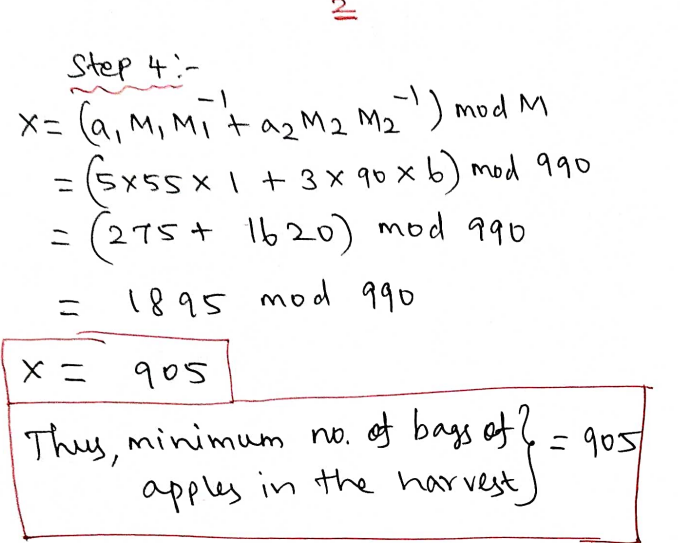 2
Step 4:-
X= (a₁ M₁ M₁⁻¹ + a₂ M₂ M₂⁻¹) mod M
= (5×55×1 + 3×90×6) mod 990
= (275+ 1620) mod 990
= 1895 mod 990
X = 905
Thus, minimum no. of bags of } = 905
apples in the harvest